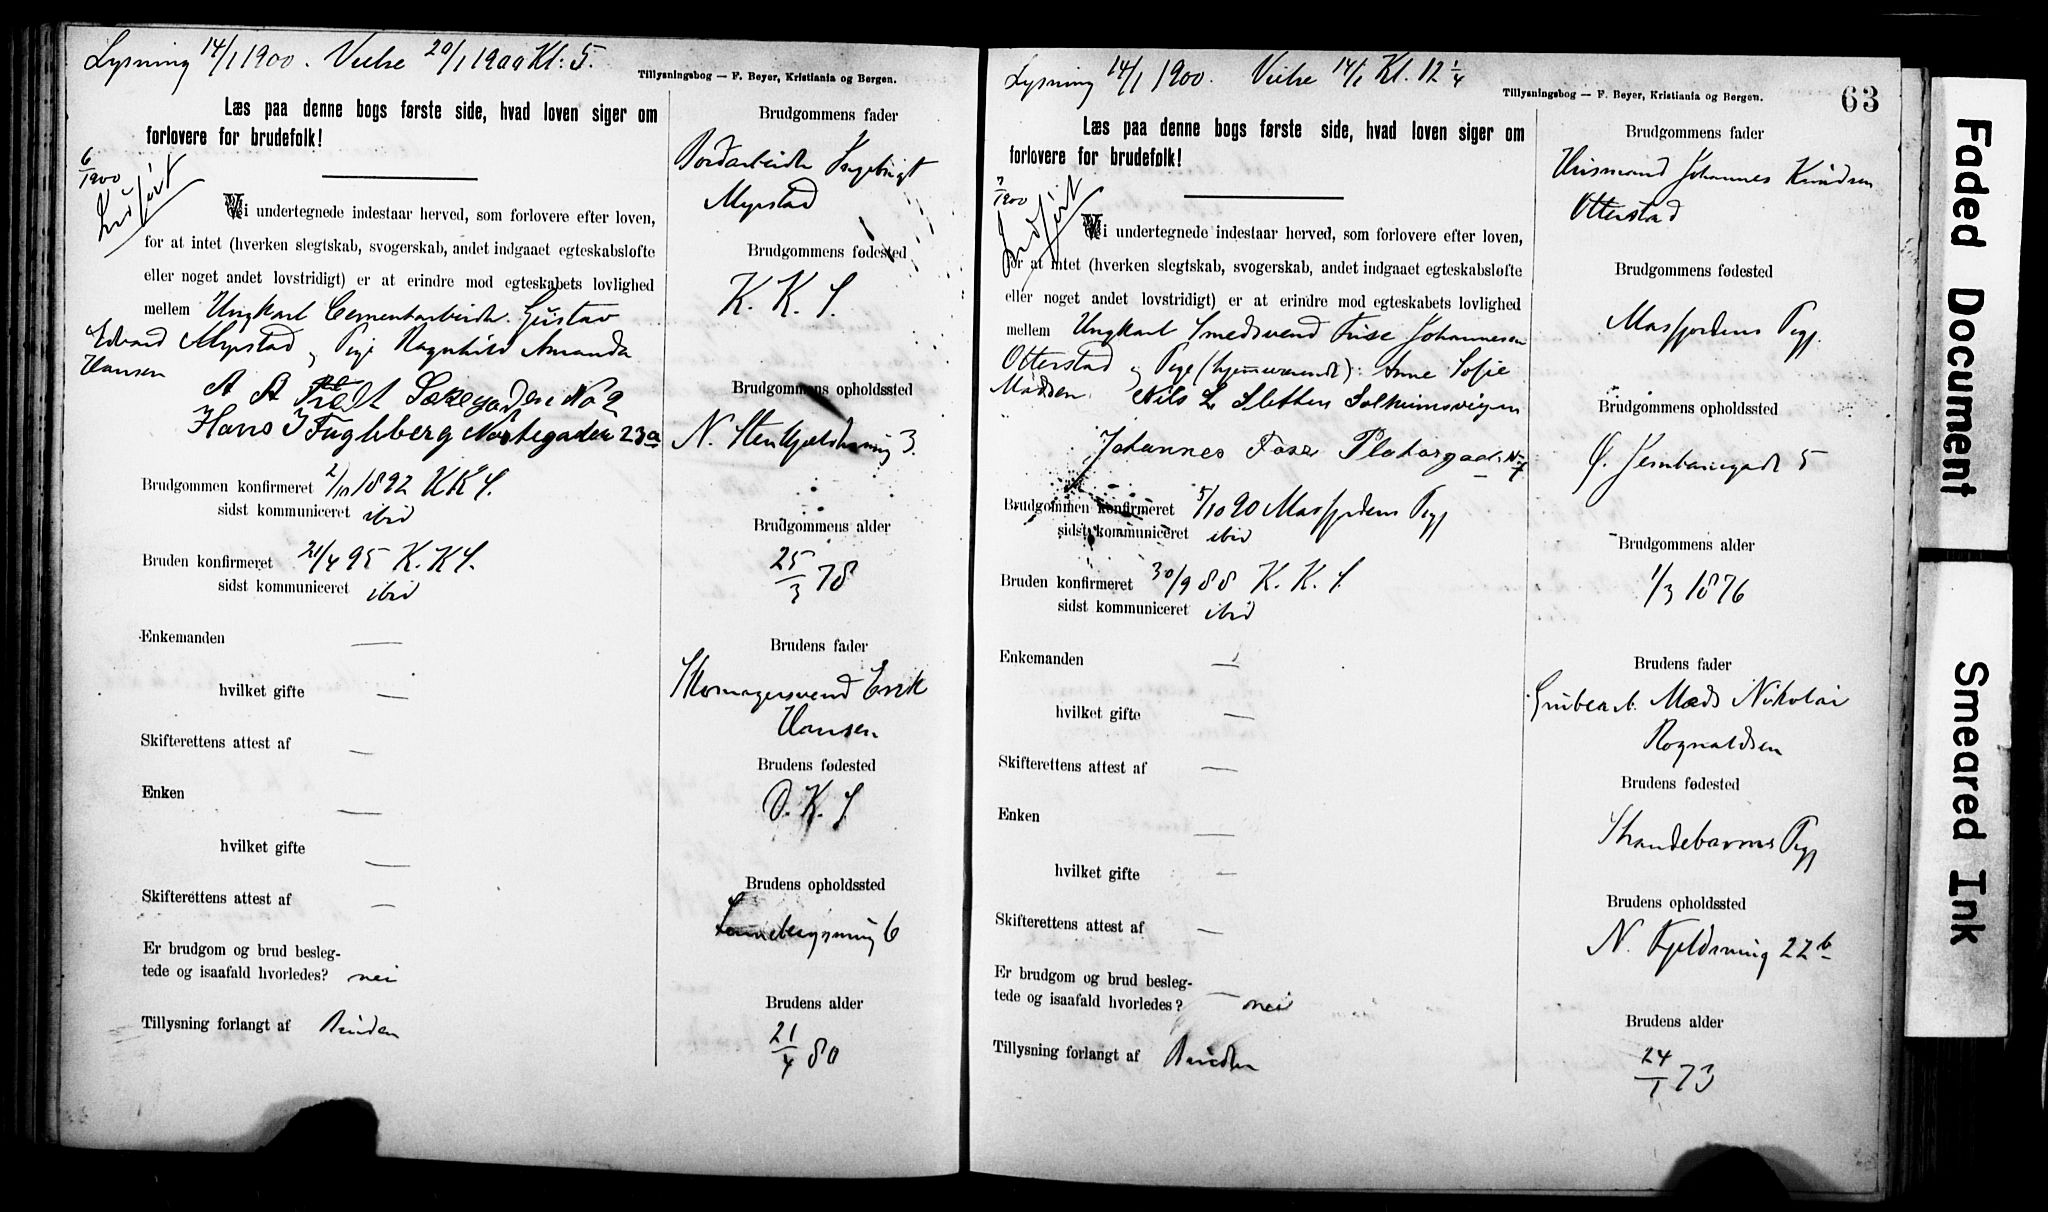 Lysning 14/1 1900. Vielse 20/1 1900 Kl: 5.
Tillysningsbog — F. Beyer, Kristiania og Bergen.
Læs paa denne bogs første side, hvad loven siger om
forlovere for brudefolk!
6/1900
Indført
Vi undertegnede indestaar herved, som forlovere efter loven,
for at intet (hverken slegtskab, svogerskab, andet indgaaet egteskabsløfte
eller noget andet lovstridigt) er at erindre mod egteskabets lovlighed
mellem Ungkarl Cementarbeider Gustav
Edvard Myrstad og Pige Ragnhild Amanda
Hansen
A A No 2
Hans J Fugleberg 23a
Brudgommen konfirmeret 2/10 1892 K.K.S.
sidst kommuniceret ibid
Bruden konfirmeret 21/4 95 K.K.S.
sidst kommuniceret ibid
Enkemanden —
hvilket gifte —
Skifterettens attest af —
Enken —
hvilket gifte —
Skifterettens attest af —
Er brudgom og brud besleg-
tede og isaafald hvorledes? nei
Tillysning forlangt af Bruden
Brudgommens fader
Ingebrigt
Myrstad
Brudgommens fødested
K. K. S.
Brudgommens opholdssted
N. 3.
Brudgommens alder
25/3 78
Brudens fader
Skomagersvend Erik
Hansen
Brudens fødested
D. K. S.
Brudens opholdssted
6
Brudens alder
21/4 80
Lysning 14/1 1900. Vielse 14/1 Kl. 12 1/4
Tillysningsbog — F. Beyer, Kristiania og Bergen.
63
Læs paa denne bogs første side, hvad loven siger om
forlovere for brudefolk!
7/1900
Indført
Vi undertegnede indestaar herved, som forlovere efter loven,
for at intet (hverken slegtskab, svogerskab, andet indgaaet egteskabsløfte
eller noget andet lovstridigt) er at erindre mod egteskabets lovlighed
mellem Ungkarl Smedsvend Johannesen
Otterstad og Pige (hjemmeværende): Anne Sofie
Madsen. Nils L Sletten Solheimsvigen
Johannes Fosse
Brudgommen konfirmeret 5/10 90 Masfjordens Pgj
sidst kommuniceret ibid
Bruden konfirmeret 30/9 88 K. K. S.
sidst kommuniceret ibid
Enkemanden —
hvilket gifte —
Skifterettens attest af —
Enken —
hvilket gifte —
Skifterettens attest af —
Er brudgom og brud besleg-
tede og isaafald hvorledes? — nei
Tillysning forlangt af Bruden
Brudgommens fader
Husmand Johannes Knudsen
Otterstad
Brudgommens fødested
Masfjordens Pgj.
Brudgommens opholdssted
Ø. Jernbanegade 5
Brudgommens alder
1/3 1876
Brudens fader
Grubearb. Mads Nikolai
Rognaldsen
Brudens fødested
Strandebarms Pgj
Brudens opholdssted
N. Fjeldsmug 22b
Brudens alder
24/1 73
Faded Document
Smeared Ink